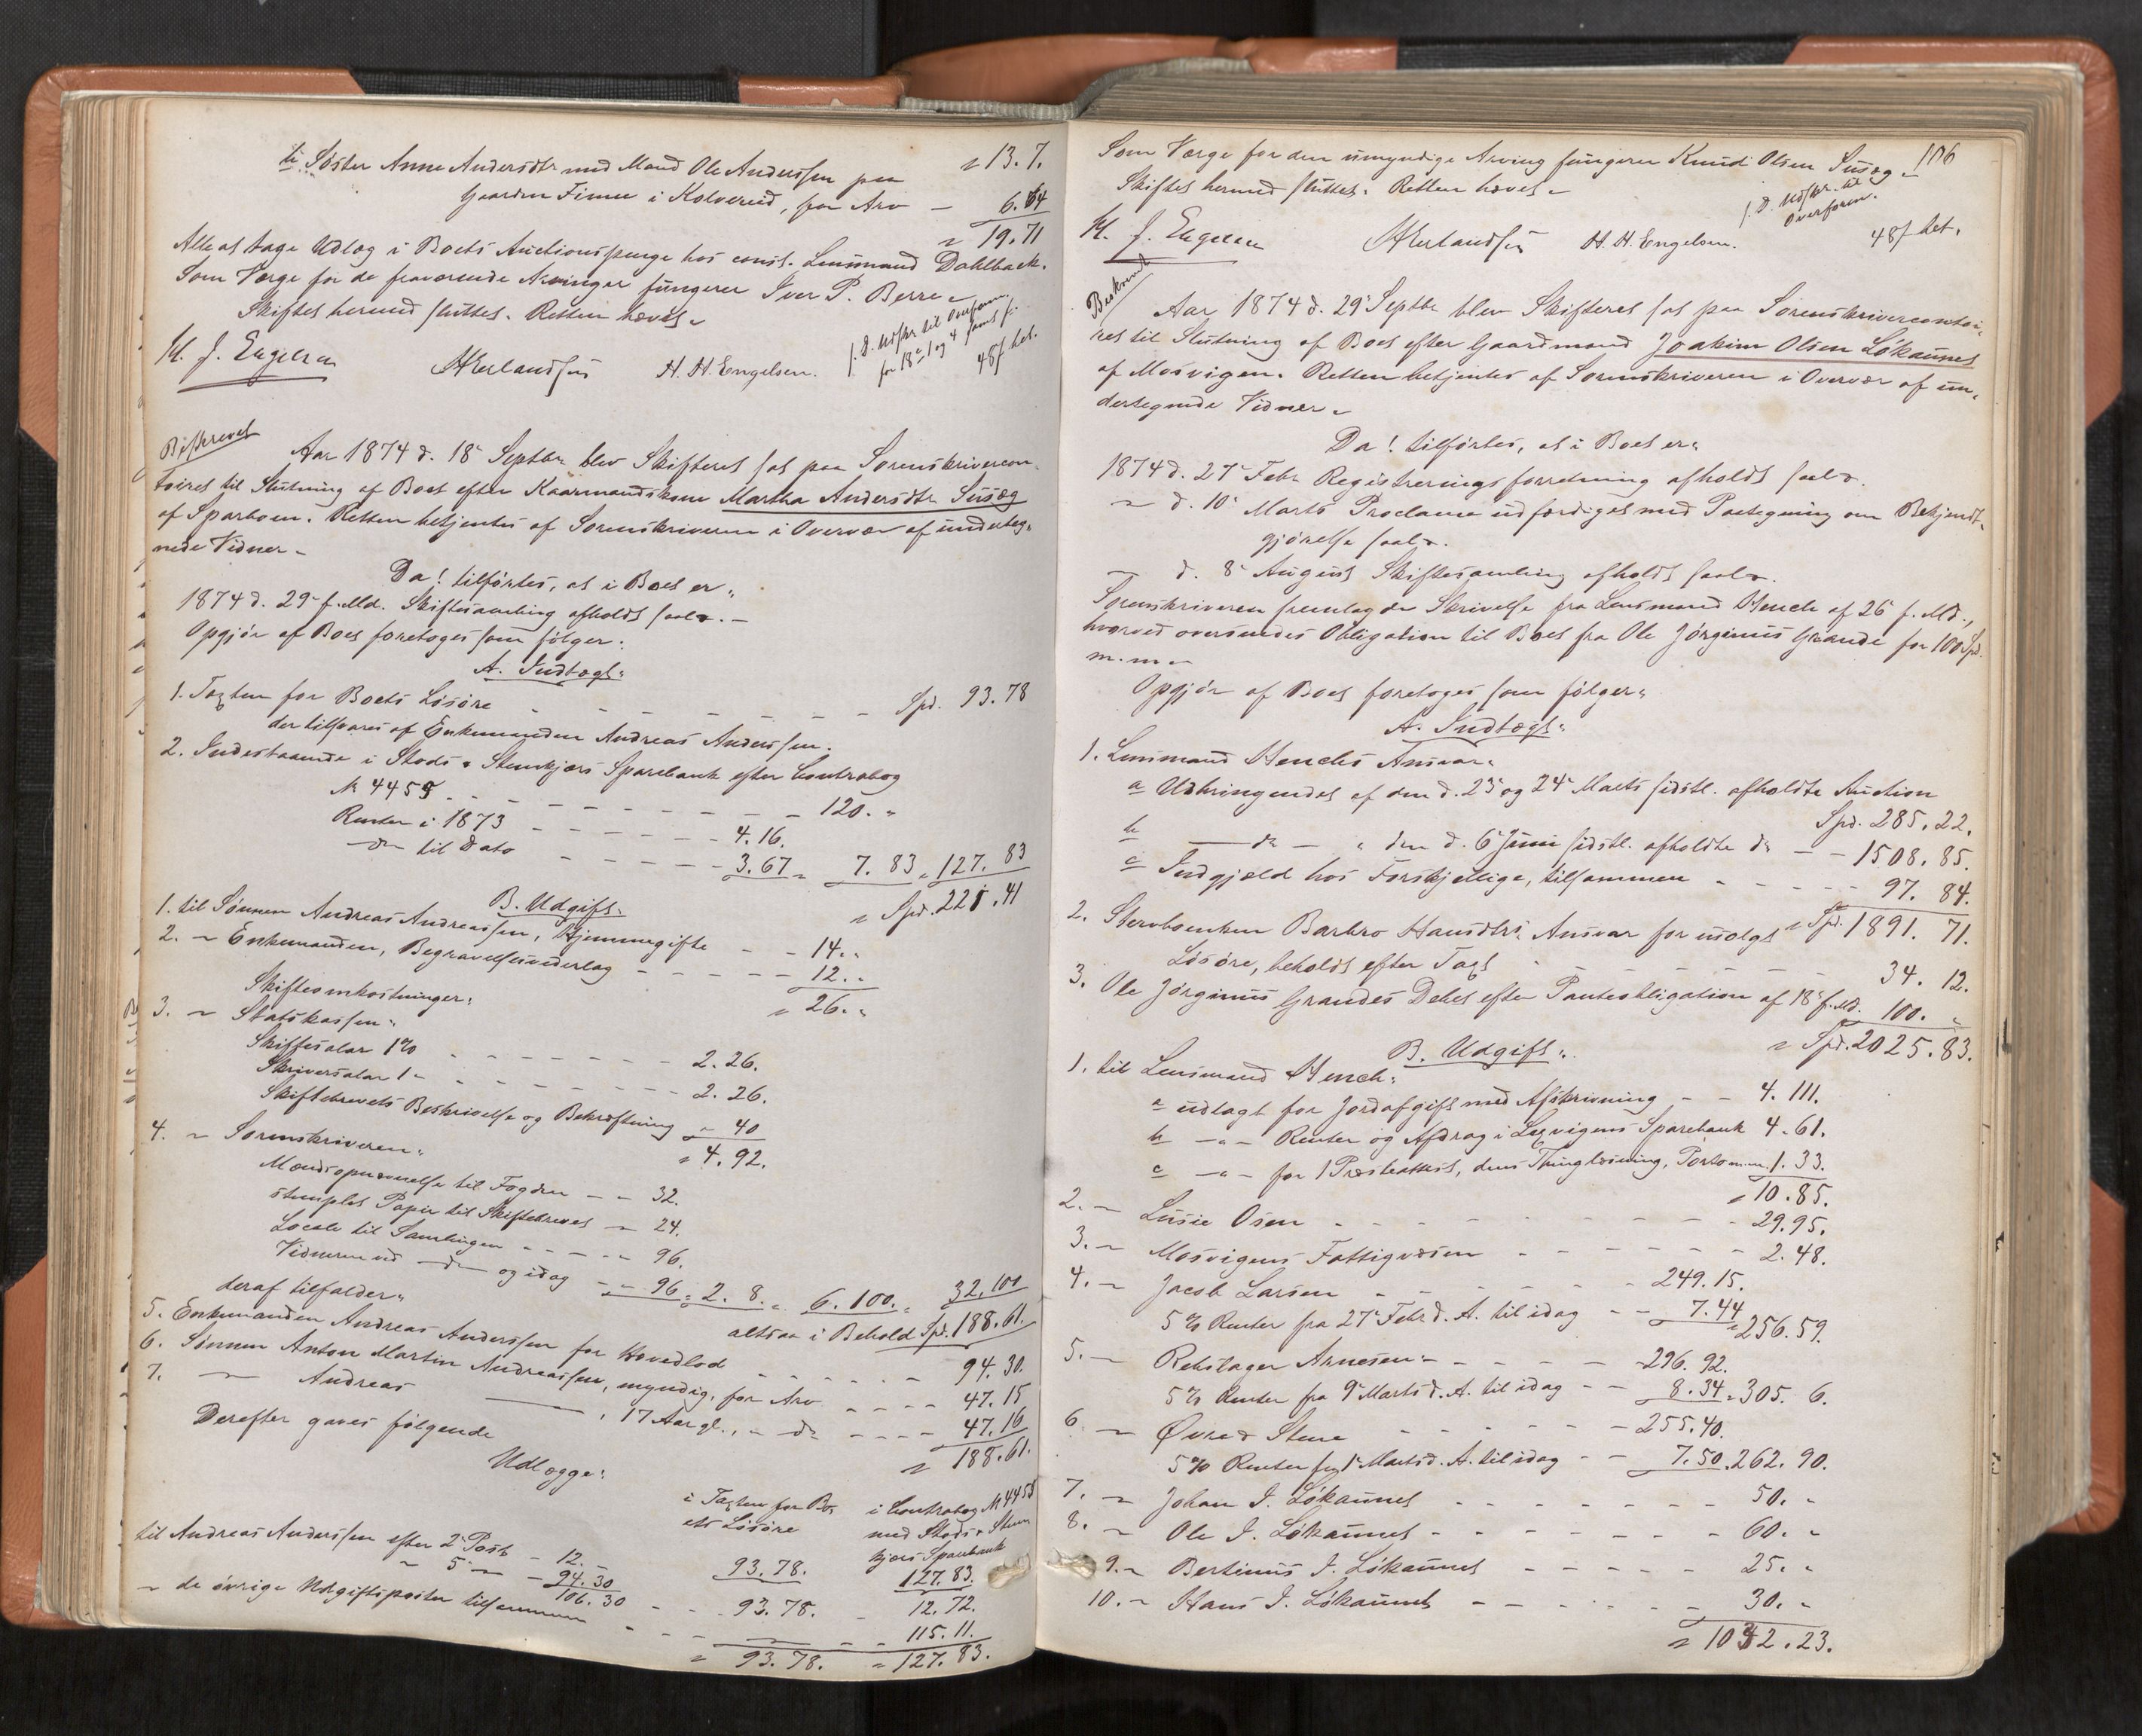 til Søster Anne Andersdtr med Mand Ole Anderssen paa " 13. 7.
Gaarden Finne i Kolvereid, for Arv — 6. 64
" 19. 71
Alle at tage Udlæg i Boets Auctionspenge hos const. Lensmand Dahlback.
Som Værge for de fraværende Arvinger fungerer Iver P. Berre.
Skiftet hermed sluttet. Retten hævet.
M. J. Engelsen AErlandsen H. H. Engelsen.
f. D. Udskr. til Overform.
for 18 1 og 4 samt f.
48 f bet.
Beskrevet
Aar 1874 d. 18 Septbr blev Skifteret sat paa Sorenskrivercon-
toiret til Slutning af Boet efter Kaarmandskone Martha Andersdtr Susæg
af Sparboen. Retten betjentes af Sorenskriveren i Overvær af underteg-
nede Vidner.
Da! tilførtes, at i Boet er:
1874 d. 29 f. Md. Skiftesamling afholdt saal. —
Opgjør af Boet foretoges som følger:
A. Indtægt:
1. Taxten for Boets Løsøre — — — — — — Spd. 93. 78
der tilsvares af Enkemanden Andreas Anderssen.
2. Indestaaende i Stods & Stenkjærs Sparebank efter Contrabog
No 4455 — — — — — — — 120. "
Renter i 1873 — — — — 4. 16.
do til Dato — — — — 3. 67 " 7. 83 " 127. 83
" Spd. 221. 41
B. Udgift:
1. til Sønnen Andreas Andreassen, Hjemmegifte — — 14. "
2. " Enkemanden, Begravelsesvederlag — — — — 12. "
" 26. "
Skifteomkostninger:
3. " Statskassen:
Skiftesalær 1% — — — — — — 2. 26.
Skriversalær 1 " — — — — — — 2. 26.
Skiftebrevets Beskrivelse og Bekræftning " 40
" 4. 92.
4. " Sorenskriveren:
Mændsopnævnelse til Fogden — — 32.
stemplet Papir til Skiftebrevet — 24.
Locale til Samlingen — — — 96.
Vidnerne ved do og idag — " 96 " 2. 8. " 6. 100. " 32. 100
altsaa i Behold Spd. 188. 61.
deraf tilfalder:
5. Enkemanden Andreas Anderssen for Hovedlod — — — — 94. 30.
6. Sønnen Anton Martin Andreassen, myndig, for Arv — — — — 47. 15
7. " Andreas — , 17 Aar gl., " do — — — — 47. 16
" 188. 61.
Derefter gaves følgende
Udlægge:
i Taxten for Bo- i Contrabog No 4455
ets Løsøre med Stods & Sten-
kjærs Sparebank
til Andreas Anderssen efter 2 Post — 12. —
" 5 " — 94. 30 93. 78. 127. 83.
106. 30 — — 93. 78. — 12. 72.
" de øvrige Udgiftsposter tilsammen — — — — — 115. 11.
" 93. 78. " 127. 83.
106
Som Værge for den umyndige Arving fungerer Knud Olsen Susæg.
Skiftet hermed sluttet. Retten hævet.
f. D. Udskr. til
Overform.
M. J. Engelsen AErlandsen H. H. Engelsen. 48 f bet.
Beskrevet
Aar 1874 d. 29 Septbr blev Skifteret sat paa Sorenskrivercontoi-
ret til Slutning af Boet efter Gaardmand Joakim Olsen Løkaunet
af Mosvigen. Retten betjentes af Sorenskriveren i Overvær af un-
dertegnede Vidner.
Da! tilførtes, at i Boet er:
1874 d. 27 Febr. Registreringsforretning afholdt saal.
" d. 10 Marts Proclama udfærdiget med Paategning om Bekjendt-
gjørelse saal.
— d. 8 August Skiftesamling afholdt saal.
Sorenskriveren fremlagde Skrivelse fra Lensmand Hench af 26 f. Md.,
hvorved oversendes Obligation til Boet fra Ole Jørginus Grande for 100 Spd.
m. m.
Opgjør af Boet foretoges som følger:
A. Indtægt:
1. Lensmand Henchs Ansvar:
a Udbringendet af den d. 23 og 24 Marts sidstl. afholdte Auction
Spd. 285. 22.
b — do — " den d. 6 Juni sidstl. afholdte do — — 1508. 85.
c Indgjæld hos Forskjellige, tilsammen — — — — 97. 84.
" Spd. 1891. 71.
2. Stervboenken Barbro Hansdtrs Ansvar for udlagt
Løsøre, beholdt efter Taxt — — — — — 34. 12.
3. Ole Jørginus Grandes Debet efter Panteobligation af 18 f. Md. 100. "
" Spd. 2025. 83.
B. Udgift:
1. til Lensmand Hench:
a udlagt for Jordafgift med Afskrivning — — 4. 111.
b — " — Renter og Afdrag i Lexvigens Sparebank 4. 61.
c — " — for 1 Præsteattest, dens Thinglæsning, Porto m. m. 1. 33.
" 10. 85.
2. " Lusie Osen — — — — — — — 29. 95.
3. " Mosvigens Fattigvæsen — — — — — 2. 48.
4. " Jacob Larsen — — — — — 249. 15.
5% Renter fra 27 Febr. d. A. til idag — — 7. 44 " 256. 59.
5. " Rebslager Arnesen — — — — — 296. 92.
5% Renter fra 9 Marts d. A. til idag — — 8. 34 " 305. 6.
6. " Øvre & Stene — — — — 255. 40.
5% Renter fra 1 Marts d. A. til idag — — 7. 50. 262. 90.
7. " Johan J. Løkaunet — — — — — — 50. "
8. " Ole J. Løkaunet — — — — — — 60. "
9. " Bertinus J. Løkaunet — — — — — 25. "
10. " Hans J. Løkaunet — — — — — — 30. "
" 1032. 23.